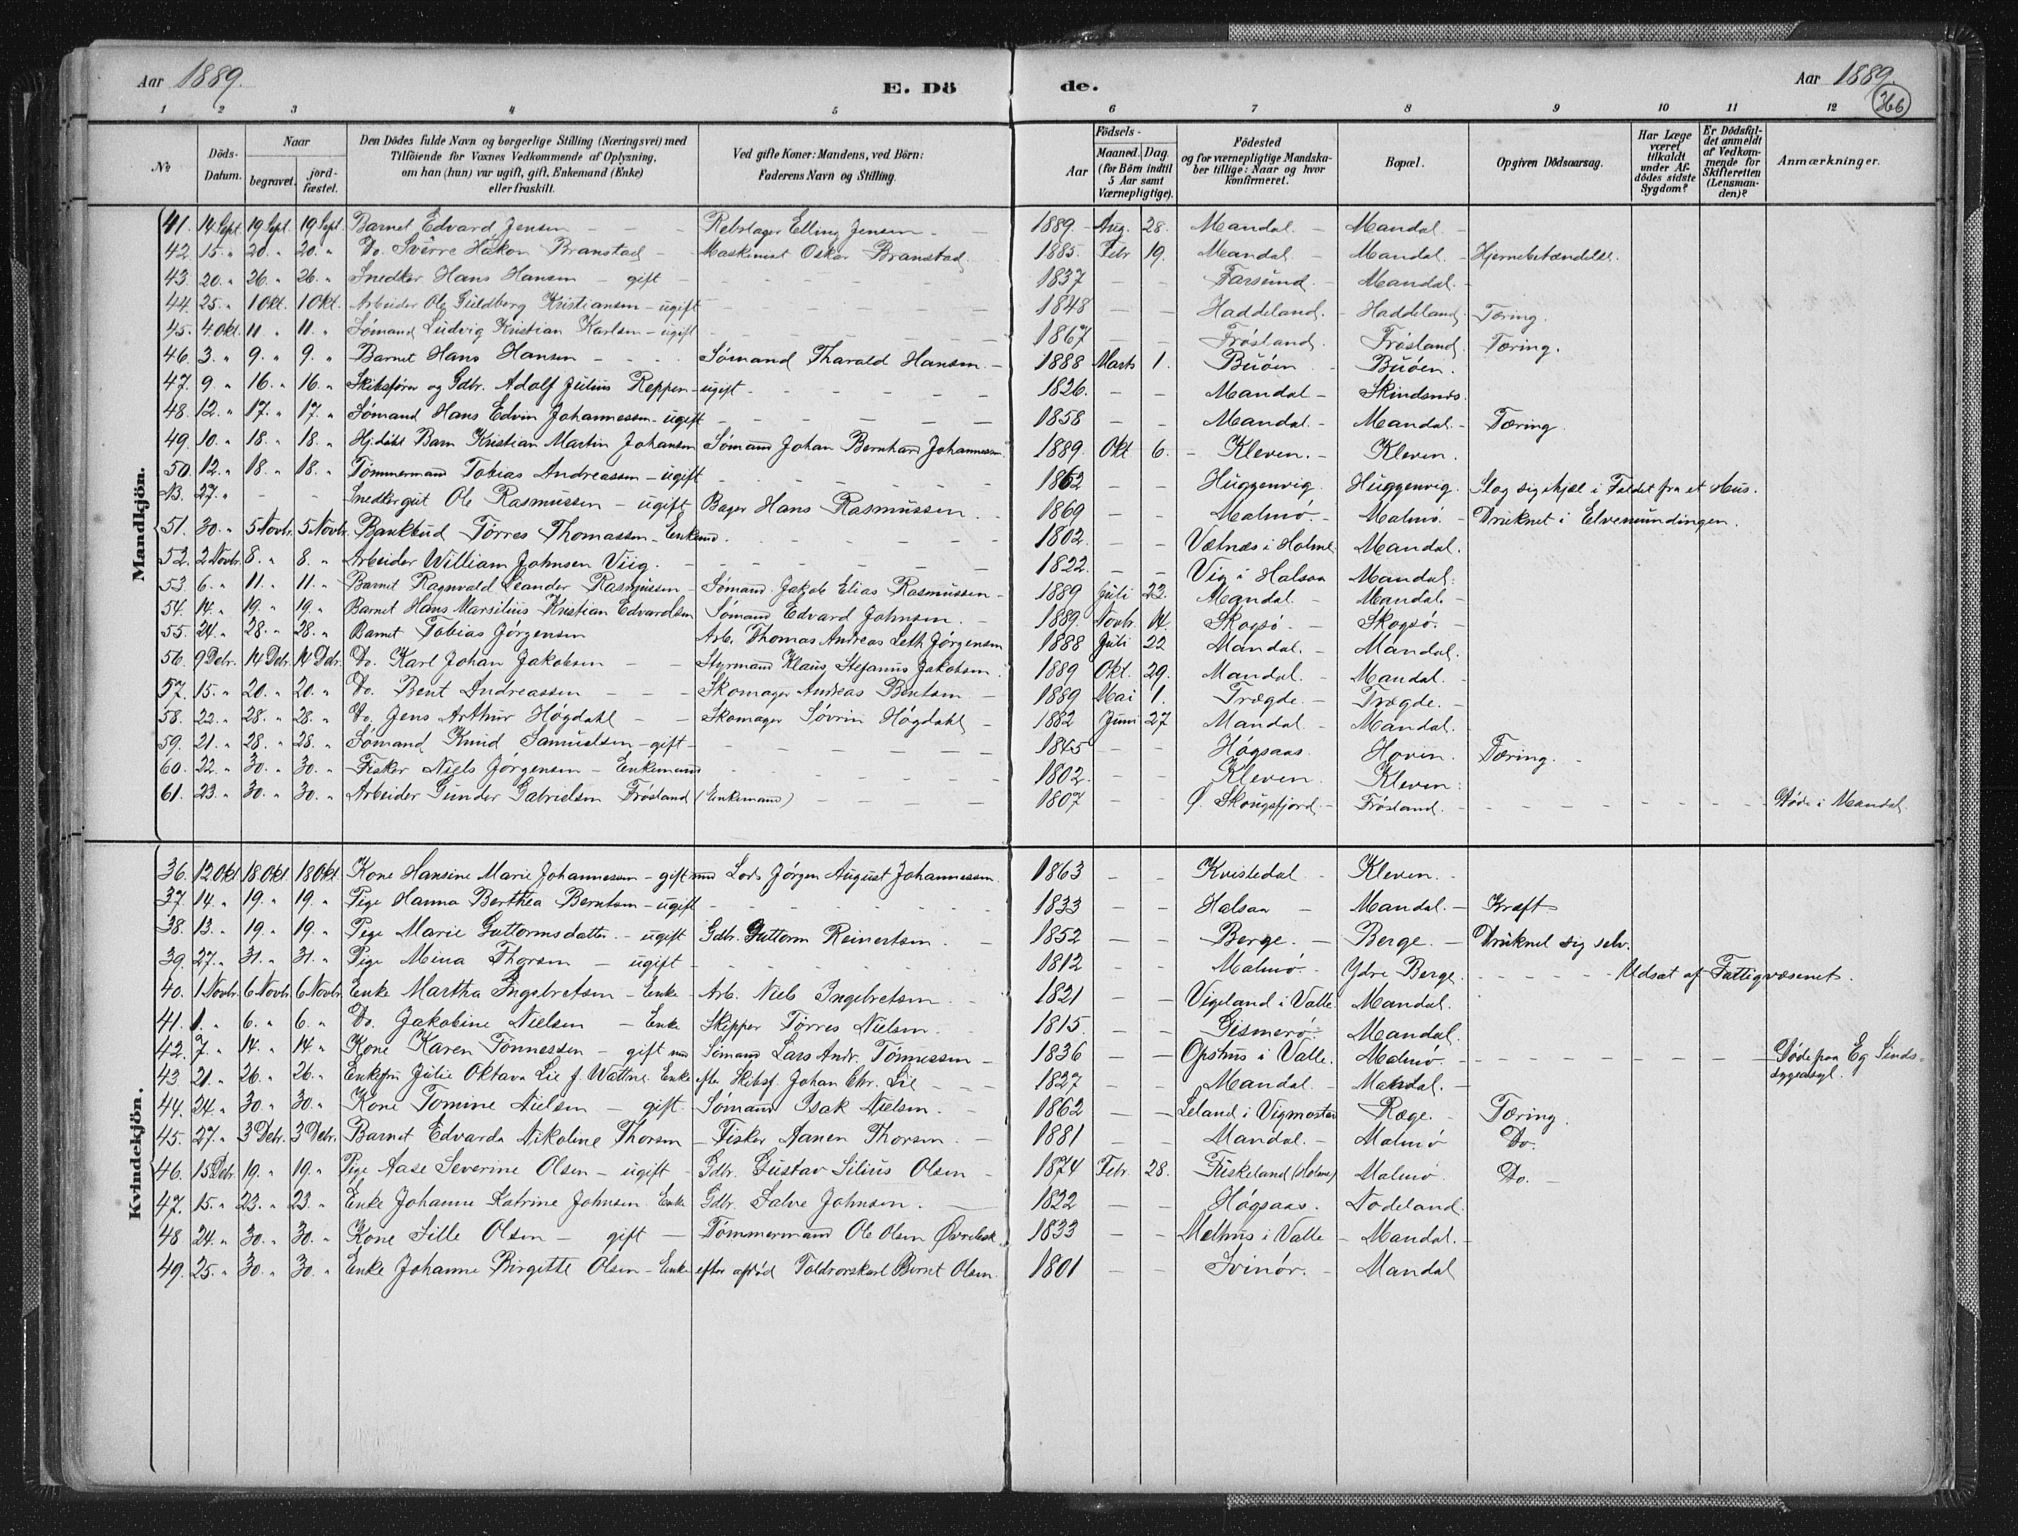 Aar 1889. E. Dö de. Aar 1889.
366
1 2 3 4 5 6 7 8 9 10 11 12
No Döds-Datum. Naar begravet. jord-fæstet. Den Dödes fulde Navn og borgerlige Stilling (Næringsvei) med Tilföiende for Voxnes Vedkommende af Oplysning, om han (hun) var ugift, gift, Enkemand (Enke) eller fraskilt. Ved gifte Koner: Mandens, ved Börn: Faderens Navn og Stilling. Födsels- Aar Maaned. Dag. (for Börn indtil 5 Aar samt Værnepligtige). Födested og for værnepligtige Mandska-ber tillige: Naar og hvor konfirmeret. Bopæl. Opgiven Dödsaarsag. Har Læge været tilkaldt under Af-dödes sidste Sygdom? Er Dödsfal-det anmeldt af Vedkom-mende for Skifteretten (Lensman-den)? Anmærkninger.
Mandkjön.
41. 14 Sept 19 Sept. 19 Sept Barnet Edvard Jensen – Rebslager Elling Jensen. – 1889 Aug. 28. Mandal – Mandal –
42. 15. " 20. " 20. " Do. Sverre Hakon Branstad – Maskinist Oskar Branstad. 1885. Febr 19. Mandal – Mandal – Hjernebetændelse.
43. 20. " 26. " 26. " Snedker Hans Hansen – gift – 1837 – – Farsund. – Mandal. –
44. 25. " 1 Okt. 1 Okt. Arbeider Ole Guldberg Kristiansen – ugift – 1848 – – Haddeland. – Haddeland. Tæring.
45. 4. Okt. 11 " 11. " Sømand Ludvig Kristian Karlsen – ugift – 1867 – Frøsland. Frøsland. Tæring.
46. 3. " 9. " 9. " Barnet Hans Hansen – Sømand Tharald Hansen. – 1888 Marts 1. Buøen – Buøen.
47. 9. " 16. " 16. " Skibsfører og Gdbr. Adolf Julius Reppen – ugift. – 1826. – – Mandal – Skindsnes.
48. 12. " 17. " 17. " Sømand Hans Edvin Johannessen – ugift – 1858 – – Mandal. – Mandal. – Tæring.
49. 10. " 18. " 18. " Hj.døbt Barn Kristian Martin Johansen Sømand Johan Bernhard Johannessen. 1889. Okt 6. – Kleven. – Kleven.
50. 12. " 18. " 18. " Tømmermand Tobias Andreassen – ugift – 1862 – – Huggenvig. Huggenvig. Slog sig ihjel i Faldet fra et Hus.
NB. 27. " – – Snedkergut Ole Rasmussen – ugift. Bager Hans Rasmussen – 1869 – – Malmø. – Malmø. – Druknet i Elvemundingen.
51. 30. " 5 Novbr. 5 Novbr. Bankbud Tørres Thomassen – Enkemd. – 1802. – – Vætnæs i Holme Mandal.
52. 2 Novbr. 8. " 8. " Arbeider William Johnsen Viig. – 1822. – – Vig i Halsaa Mandal.
53. 6. " 11. " 11. " Barnet Ragnvald Leander Rasmussen – Sømand Jakob Elias Rasmussen – 1889 Juli 22. Mandal – Mandal.
54. 14. " 19. " 19. " Barnet Hans Marselius Kristian Edvardsen Sømand Edvard Johnsen. – 1889. Novbr. 14. Skogsø. – Skogsø. –
55. 24. " 28. " 28. " Barnet Tobias Jørgensen Arb. Thomas Andreas Leth Jørgensen 1888 Juli 22 Mandal. – Mandal.
56. 9 Debr. 14 Debr. 14 Debr. Do. Karl Johan Jakobsen – Styrmand Klaus Stefanus Jakobsen. 1889 Okt. 29. Mandal. – Mandal. –
57. 15. " 20. " 20. " Do. Bent Andreassen – Skomager Andreas Bentsen – 1889 Mai 1. Trægde. – Trægde. –
58. 22. " 28. " 28. " Do. Jens Arthur Høgdahl – Skomager Søvrin Høgdahl – 1882 Juni 27 Mandal – Mandal.
59. 21. " 28. " 28. " Sømand Knud Samuelsen – gift – 1845 – – Høgsaas. Hoven. Tæring.
60. 22. " 30. " 30. " Fisker Niels Jørgensen – Enkemand – 1802. – – Kleven. Kleven.
61. 23. " 30. " 30. " Arbeider Gunder Gabrielsen Frøsland (Enkemand) – 1807 – – Ø. Skougsfjord. – Frøsland. – Døde i Mandal.
Kvindekjön.
36. 12 Okt. 18 Okt. 18 Okt. Kone Hansine Marie Johannessen – gift med Lods Jørgen August Johannessen. 1863 – – Kvistedal – Kleven. –
37. 14. " 19. " 19. " Pige Hanna Berthea Berntsen – ugift – 1833 – – Halsaa – Mandal. – Kræft
38. 13. " 19. " 19. " Pige Marie Guttormsdatter. – ugift Gdbr. Guttorm Reinertsen. – 1852 – – Berge. – Berge. – Druknet sig selv.
39. 27. " 31. " 31. " Pige Mina Thorsen – ugift – 1812 – – Malmø – Ydre Berge. – Udsat af Fattigvæsenet.
40. 1 Novbr. 6 Novbr. 6 Novbr. Enke Martha Ingebretsen – Enke Arb. Niels Ingebretsen. 1821 – – Vigeland i Valle. Mandal.
41. 1. " 6. " 6. " Do. Jakobine Nielsen – Enke Skipper Tørres Nielsen. 1815. – – Gismerø. Mandal.
42. 7. " 14. " 14. " Kone Karen Tønnessen – gift med Sømand Lars Andr. Tønnessen – 1836 – – Opshus i Valle. Malmø. – Døde paa Eg Sinds-
sygeasyl.
43. 21. " 26. " 26. " Enkefru Julie Oktava Lie f. Wattne. Enke efter Skibsf. Johan Chr. Lie – 1827 – – Mandal. – Mandal. –
44. 24. " 30. " 30. " Kone Tomine Nielsen – gift. Sømand Isak Nielsen. – 1862 – – Leland i Vigmostad Ræge. – Tæring.
45. 27. " 3 Debr. 3 Debr. Barnet Edvarda Nikoline Thorsen – Fisker Aanen Thorsen. – 1881 – – Mandal. – Malmø Do.
46. 15 Debr. 19. " 19. " Pige Aase Severine Olsen – ugift – Gdbr. Gustav Silius Olsen – 1874 Febr. 28. Fuskeland (Holme) Malmø. Do. –
47. 15. " 23. " 23. " Enke Johanne Katrine Johnsen. Enke Gdbr. Salve Johnsen. – 1822 – – Høgsaas. Nodeland.
48 24. " 30. " 30. " Kone Sille Olsen – gift – Tømmermand Ole Olsen Øvrebæk. 1833 – – Melhus i Valle – Mandal. –
49. 25. " 30. " 30. " Enke Johanne Birgitte Olsen – Enke efter afdød Toldrorskarl Bernt Olsen. 1801 – – Ivinør. – Mandal